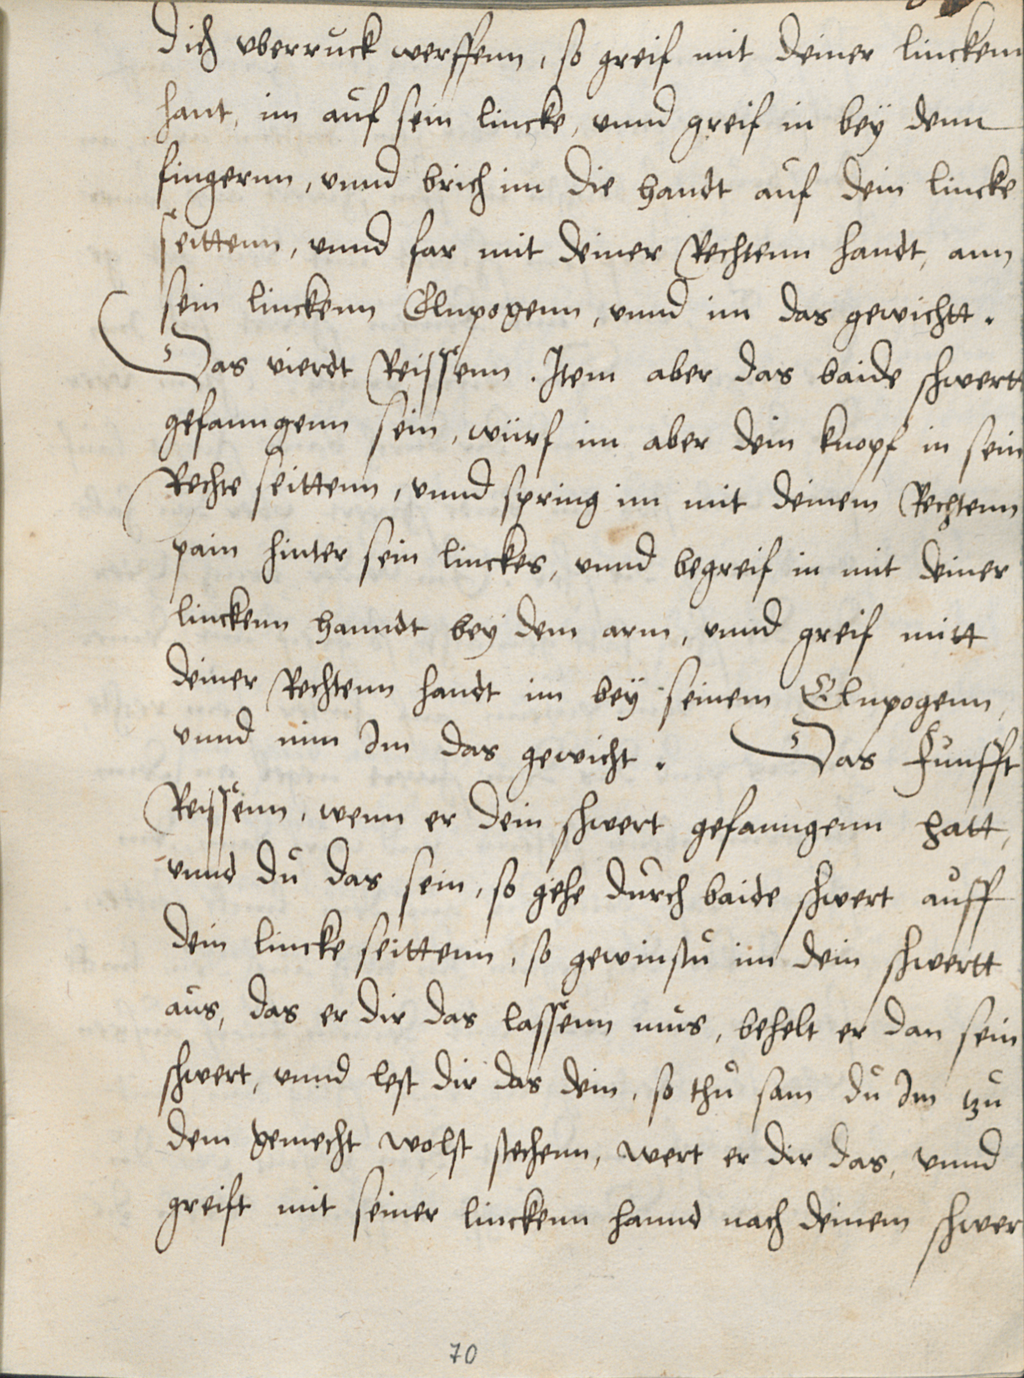 dich vberruck werffenn, so greif mit deiner linckenn
hant, im auf sein lincke, vnnd greif in beÿ denn
fingernn, vnnd brich im die handt auf dein lincke
seittenn, vnnd far mit deiner Rechtenn handt, ann
sein linckenn Elnpogenn, vnnd im das gewichtt.
Das vierdt Reissenn. Item aber das baide schwertt
gefanngenn sein, würf im aber dein knopf in sein
Rechte seittenn, vnnd spring im mit deinem Rechtenn
pain hinter sein linckes, vnnd begreif in mit deiner
linckenn hanndt beÿ dem arm, vnnd greif mitt
deiner Rechtenn handt im beÿ seinem Elnpogenn,
vnnd nim Im das gewicht. Das Funfft
Reissenn, wenn er dein schwert gefanngenn hatt,
vnnd du das sein, so gehe durch baide schwert auff
dein lincke seittenn, so gewinstu im dein schwertt
aus, das er dir das lassenn mus, behelt er dan sein
schwert, vnnd lest dir das dein, so thu sam du Im tzu
dem gemecht wolst stechenn, wert er dir das, vnnd
greift mit seiner linckenn hannd nach deinem schwer
70